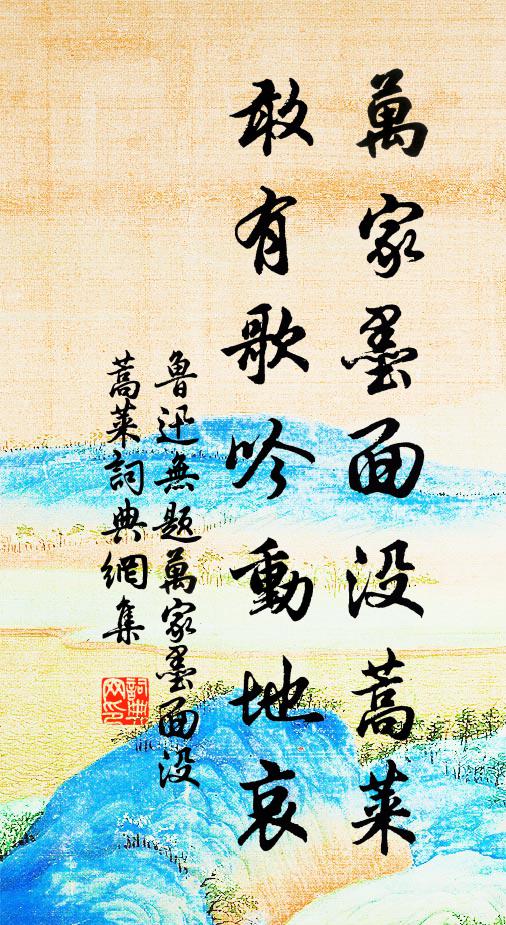 萬家墨面没蒿萊
敢有歌吟動地哀
魯迅無題萬家墨面没
蒿萊詞典網集
詞典网印